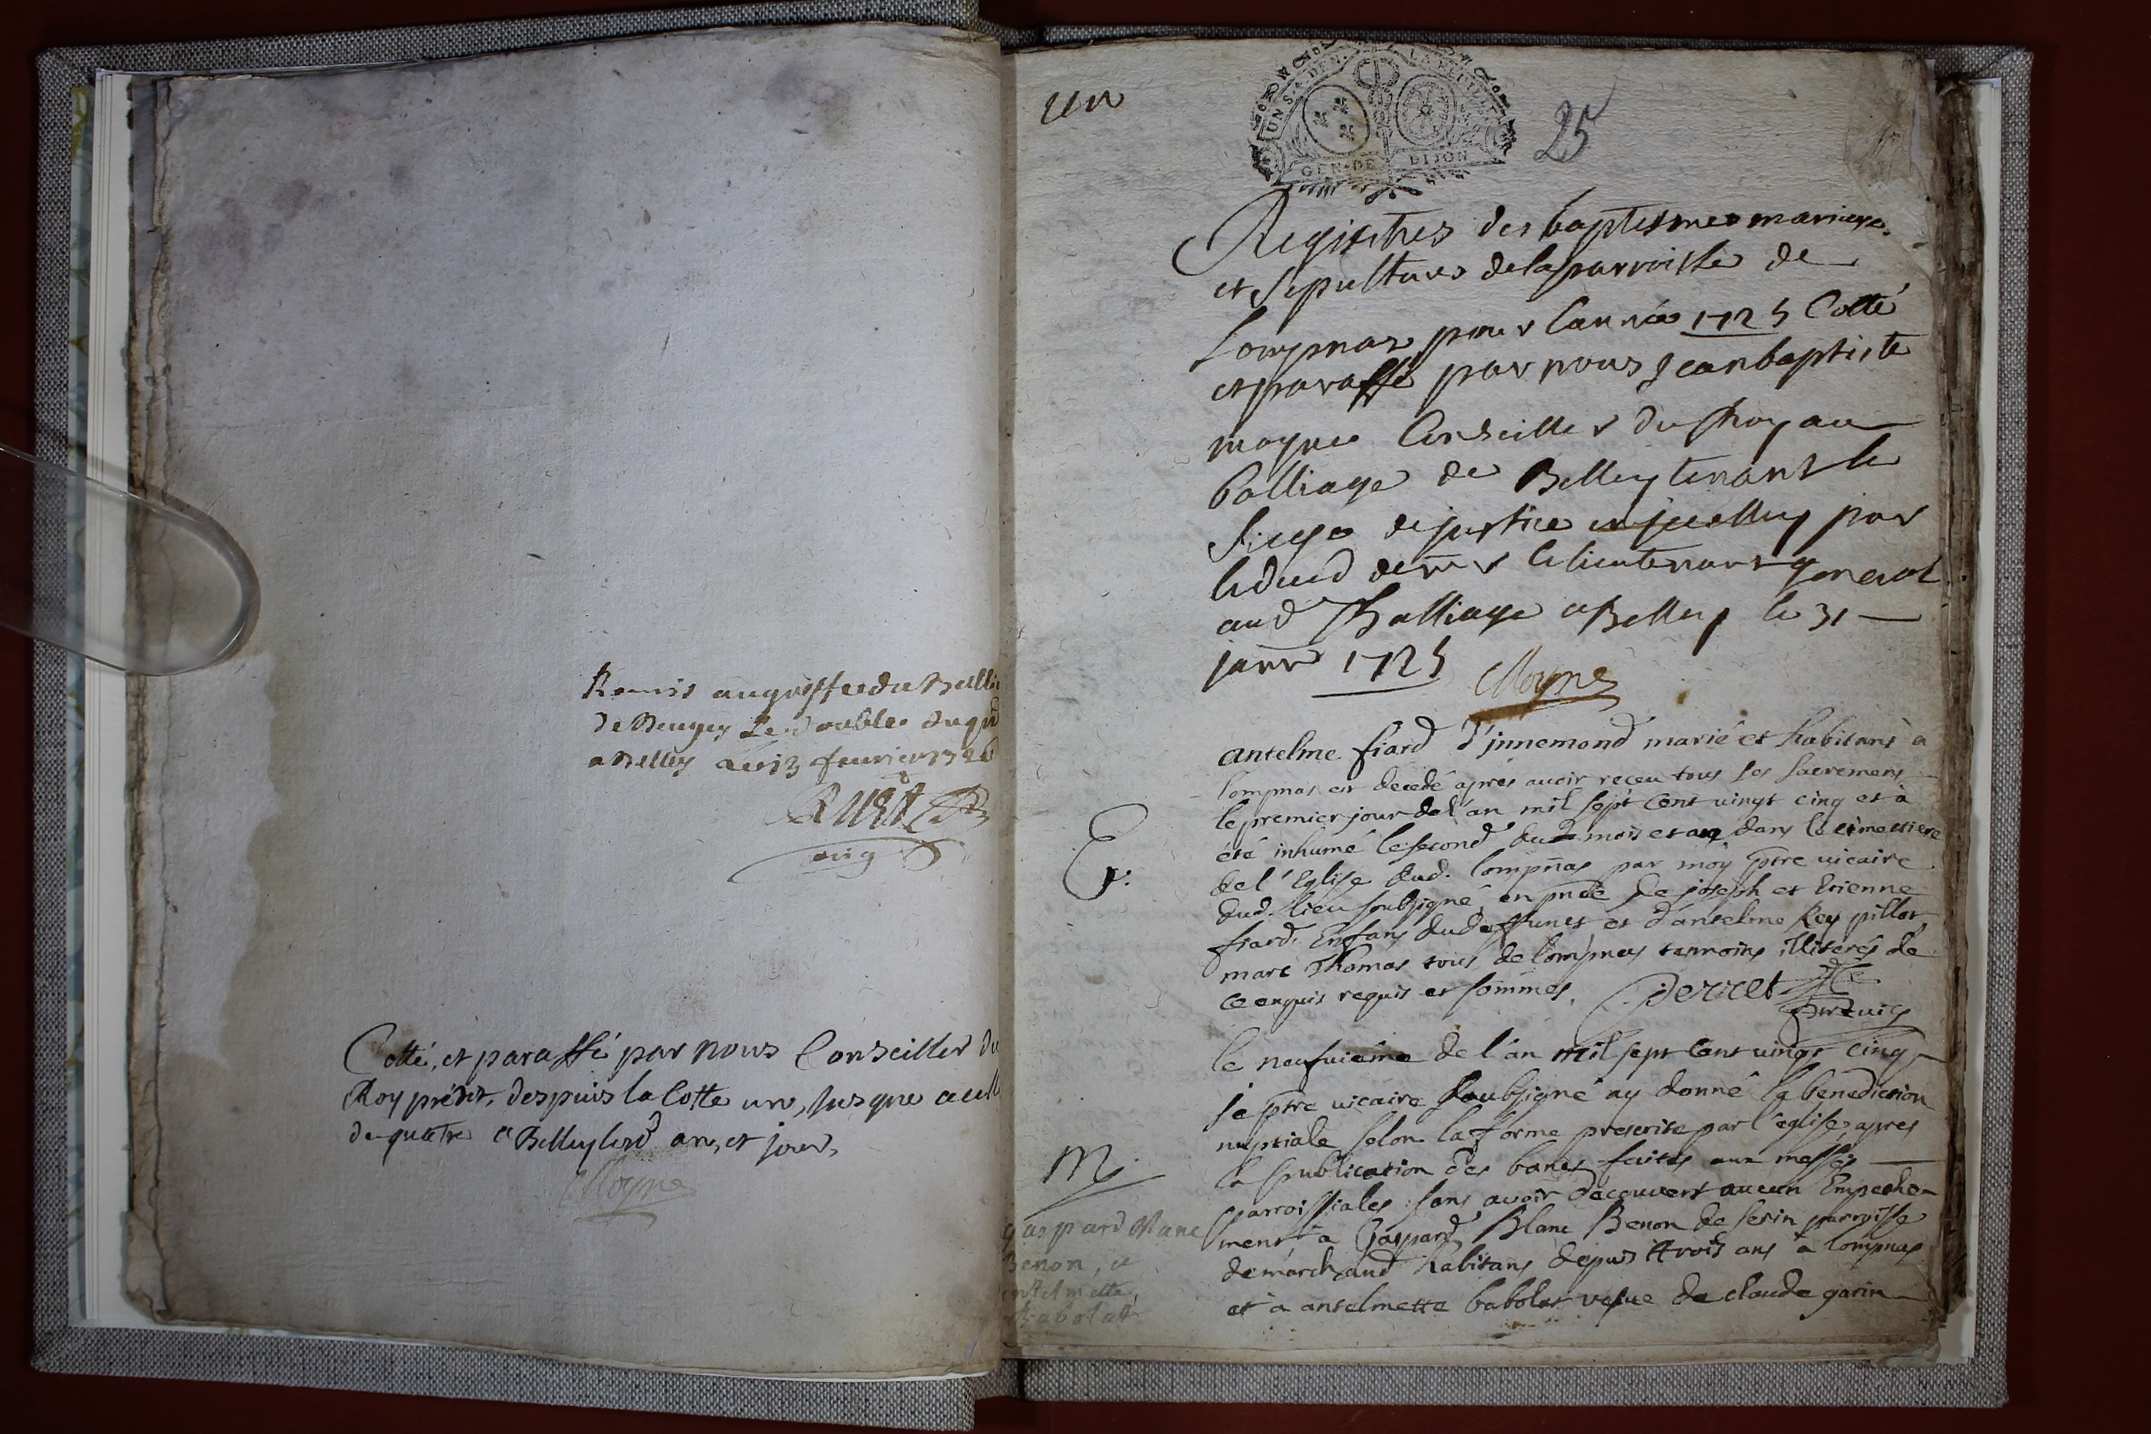 Remis au greffe du Balli
de Beugey Le double du
a Belley Le 13 fevrier 1726
Cotté, et paraffé par nous Conseiller du
Roy prédit, despuis la Cotte un, jusque a cell
de quatre a Belley lesd an, et jour,
Moyne
un
25
UN S. 4 DEN.
GEN. DE DIJON
Registres des baptesmes mariages
et sepultures de la parroisse de
Lompnas pour l'année 1725 Cotté
et paraffé par nous Jean baptiste
moyne Conseiller du Roy au
balliage de Belley tenant le
siege de justice par
le lieutenant general
aud Balliage a Belley le 31
janv 1725
Moyne
antelme fiard d'jnnemond marié et habitant à
lompnas est decedé apres avoir receu tous les sacremens
le premier jour de l'an mil sept cent vingt cinq et à
été inhumé le second dud mois et an dans le cimettiere
de l'Eglise dud. lompñas par moy ptre vicaire
dud. lieu soubsigné en pñce de joseph et Etienne
fiard Enfans du deffunct et d'antelme Rey pillot
marc Thomas tous de lompnas temoins illiterés de
ce enquis requis et sommés. Derret
ptre vic
le neufvieme de l'an mil sept cent vingt cinq
je ptre vicaire soubsigné ay donné la benediction
nuptiale selon la forme prescrite par l'eglise apres
M.
la publication des bancs faites aux messes
parroissiales sans avoir decouvert aucun Empeche-
ment à Gaspard Blanc Benon de serin parroisse
de marchand habitans depuis trois ans à lompnas
et à antelmette babolat vefve de claude garin
gaspard Blanc
Benon, et
antelmette
Babolat